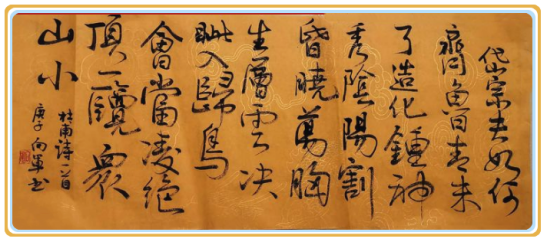 岱宗夫如何
齊魯青未
了造化鍾神
秀陰陽割
昏曉蕩胸
生層雲决
眥入歸鳥
會當凌絕
頂一覽眾
山小
杜甫詩一首
庚子向軍书